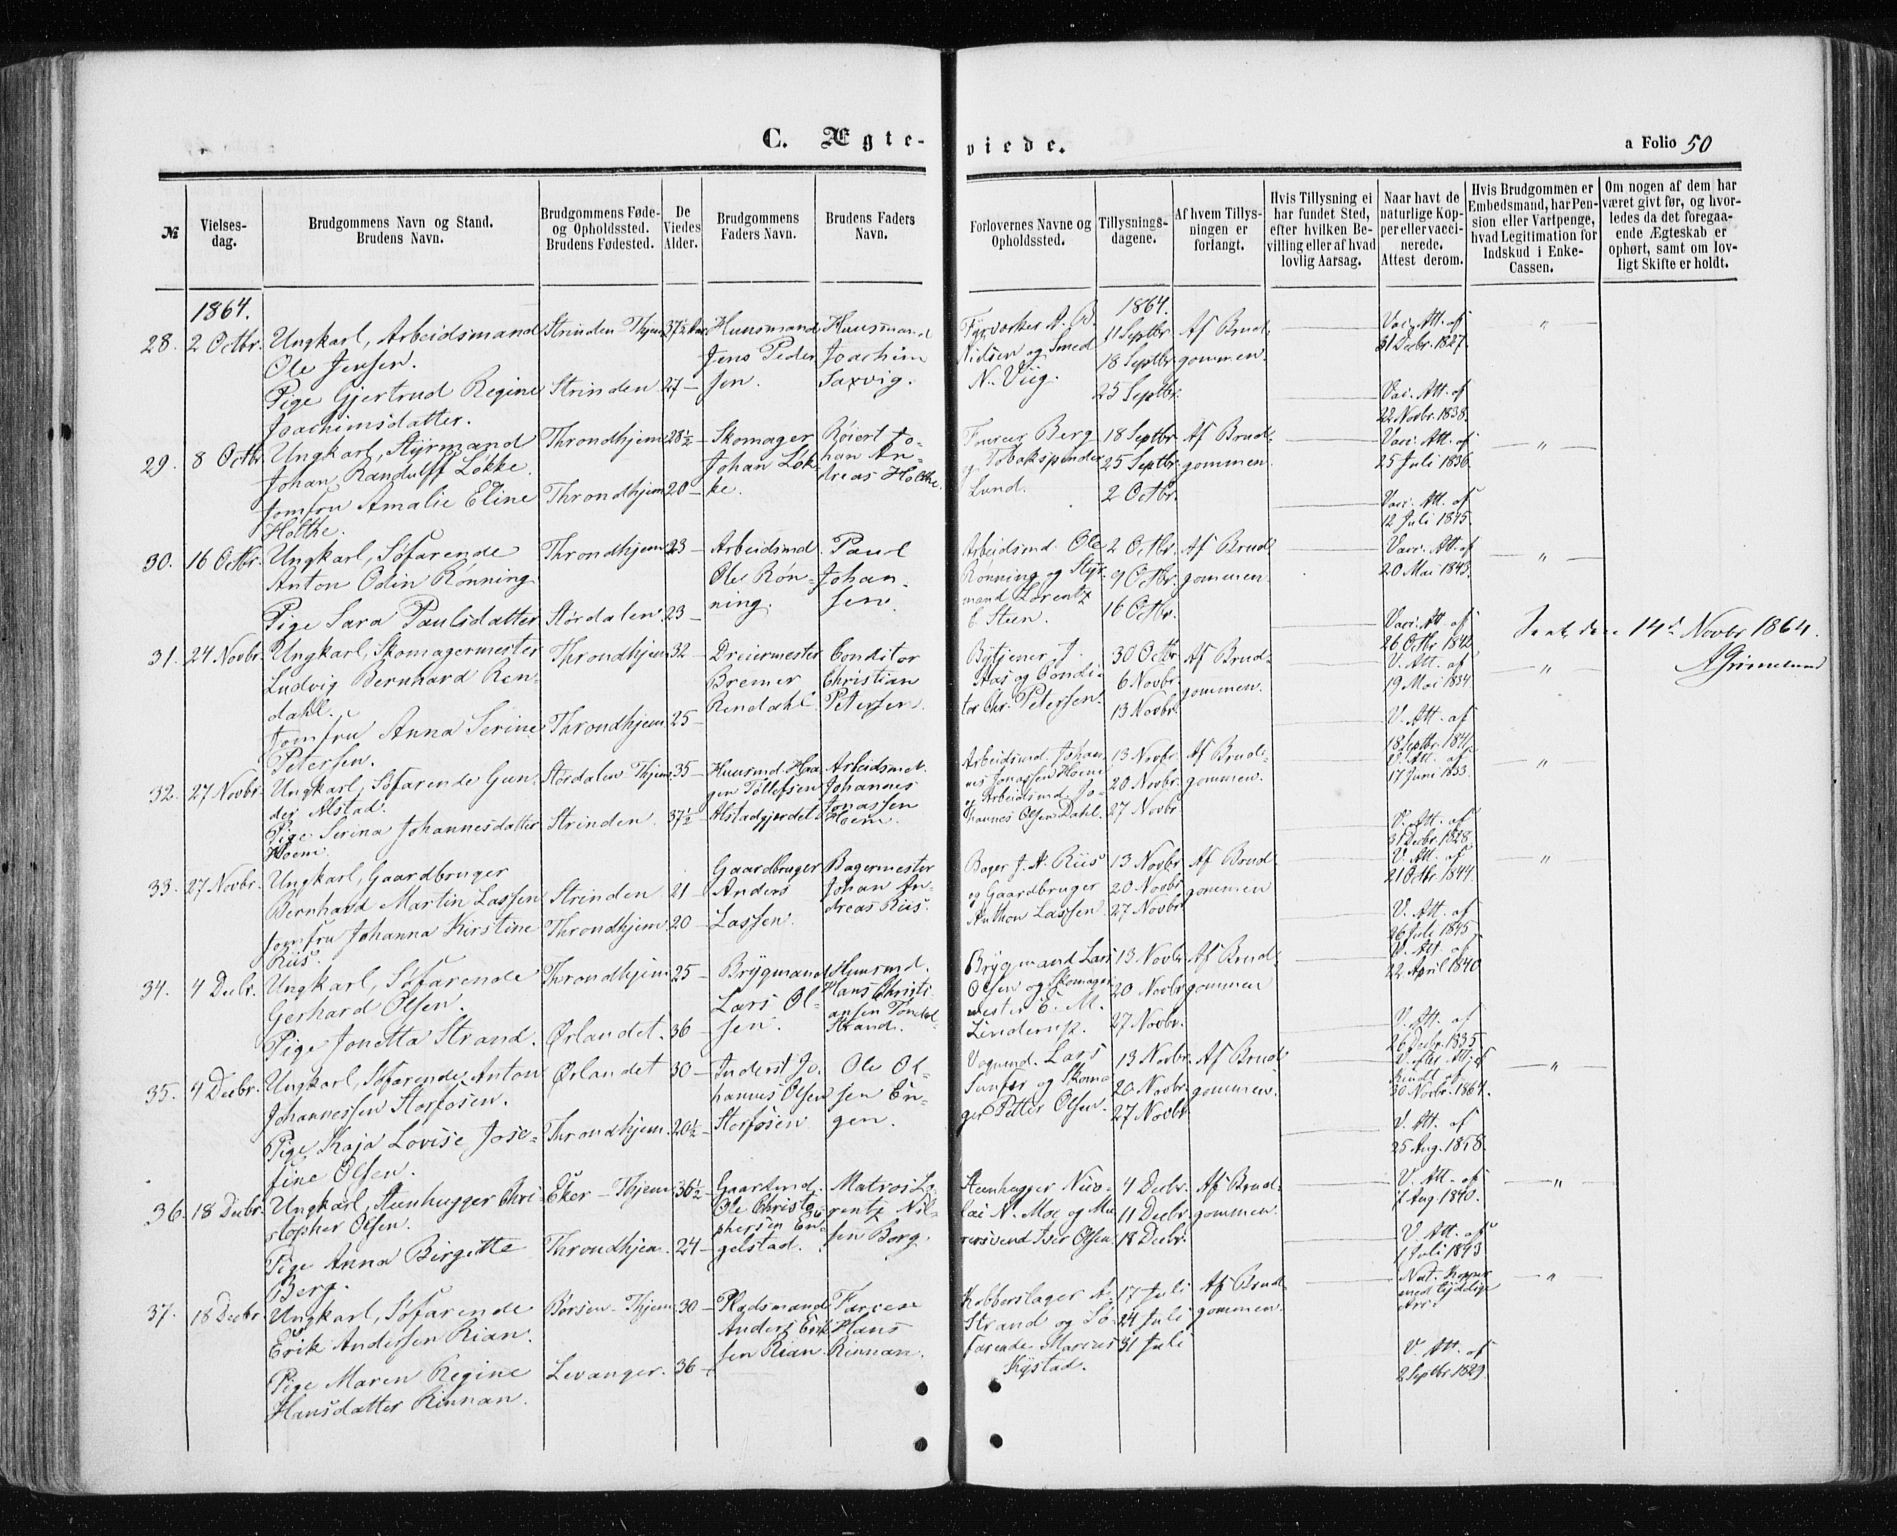 C. Ægte-
viede.
a Folio 50
№
Vielses-
dag.
Brudgommens Navn og Stand.
Brudens Navn.
Brudgommens Føde-
og Opholdssted.
Brudens Fødested.
De
Viedes
Alder.
Brudgommens
Faders Navn.
Brudens Faders
Navn.
Forlovernes Navne og
Opholdssted.
Tillysnings-
dagene.
Af hvem Tillys-
ningen er
forlangt.
Hvis Tillysning ei
har fundet Sted,
efter hvilken Be-
villing eller af hvad
lovlig Aarsag.
Naar havt de
naturlige Kop-
per eller vacci-
nerede.
Attest derom.
Hvis Brudgommen er
Embedsmand, har Pen-
sion eller Vartpenge,
hvad Legitimation for
Indskud i Enke-
Cassen.
Om nogen af dem har
været givt før, og hvor-
ledes da det foregaa-
ende Ægteskab er
ophørt, samt om lov-
ligt Skifte er holdt.
1864.
28. 2 Octbr.
Ungkarl, Arbeidsmand
Ole Jensen.
Pige Gjertrud Regine
Joachimsdatter.
Strinden Thjem
Strinden
37½ Aar
27 —
Huusmand
Jens Peder
sen.
Huusmand
Joachim
Saxvig.
Fyrvorker A. B.
Nielsen og Smed
N. Viig.
1864.
11 Septbr.
18 Septbr.
25 Septbr.
Af Brud-
gommen.
Vac. Att. af
31 Decbr. 1827.
Vac. Att. af
22 Novbr. 1838.
"
29. 8 Octbr.
Ungkarl, Styrmand
Johan Randulff Løkke.
Jomfru Amalie Eline
Holthe.
Throndhjem
Throndhjem
28½ —
20 —
Skomager
Johan Løk-
ke.
Røiert Jo-
han An-
dreas Holthe.
Fourer Berg
og Tobakspinder
Lund.
18 Septbr.
25 Septbr.
2 Octbr.
Af Brud-
gommen.
Vacc. Att. af
25 Juli 1836.
Vacc. Att. af
12 Juli 1845.
"
30. 16 Octbr.
Ungkarl, Søfarende
Anton Odin Rønning
Pige Sara Paulsdatter
Throndhjem
Størdalen
23 —
23 —
Arbeidsmd
Ole Røn-
ning.
Paul
Johan-
sen.
Arbeidsmd. Ole
Rønning og Styr-
mand Lorentz
C. Steen.
2 Octbr.
9 Octbr.
16 Octbr.
Af Brud-
gommen.
Vacc. Att. af
20 Mai 1843.
Vacc. Att. af
26 Octbr. 1842.
"
31. 24 Novbr.
Ungkarl, Skomagermester
Ludvig Bernhard Ren-
dahl.
Jomfru Anna Serine
Petersen.
Throndhjem
Throndhjem
32 —
25 —
Dreiermester
Bremer
Rendahl
Conditor
Christian
Petersen.
Bytjener J.
Aas og Condi-
tor Chr. Petersen.
30 Octbr.
6 Novbr.
13 Novbr.
Af Brud-
gommen.
V. Att. af
19 Mai 1834.
V. Att. af
18 Septbr. 1841.
"
14d Novbr 1864.
AGrimelund
32. 27 Novbr.
Ungkarl, Søfarende Gun-
der Alstad.
Pige Serina Johannesdatter
Hoem.
Størdalen Thjem
Strinden.
35 —
37½ —
Huusmd. Haa-
gen Tollefsen
Alstadgjerdet
Arbeidsmd.
Johannes
Jonassen
Hoem.
Arbeidsmd. Johan-
nes Jonassen Hoem
og Arbeidsmd. Jo-
hannes Olsen Dahl.
13 Novbr.
20 Novbr.
27 Novbr.
Af Brud-
gommen.
V. Att. af
17 Juni 1833.
V. Att. af
31 Decbr. 1828.
"
33. 27 Novbr.
Ungkarl, Gaardbruger
Bernhard Martin Lassen
Jomfru Johanna Kirstine
Riis.
Strinden
Throndhjem
21 —
20 —
Gaardbruger
Anders
Lassen.
Bagermester
Johan An-
dreas Riis.
Bager J. A. Riis
og Gaardbruger
Anthon Lassen.
13 Novbr.
20 Novbr.
27 Novbr.
Af Brud-
gommen
V. Att. af
21 Octbr. 1844.
V. Att. af
26 Juli 1845.
"
34. 4 Decbr.
Ungkarl, Søfarende
Gerhard Olsen.
Pige Jonetta Strand.
Throndhjem
Ørlandet.
25 —
36 —
Brygmand
Lars Ol-
sen.
Huusmd.
Hans Christi-
ansen Tondel-
Strand.
Brygmand Lars
Olsen og Skomager-
mester C. M.
Linderup.
13 Novbr.
20 Novbr.
27 Novbr.
Af Brud-
gommen
V. Att. af
22 April 1840.
V. Att. af
26 Decbr. 1835.
35. 4 Decbr.
Ungkarl, Søfarende Anton
Johannessen Storfosen.
Pige Kaja Lovise Jose-
fine Olsen.
Ørlandet
Throndhjem.
30 —
20½ —
Inderst Jo-
hannes Olsen
Storfosen
Ole Ol-
sen En-
gen.
Vognmd. Lars
Sanfær og Skoma-
ger Petter Olsen.
13 Novbr.
20 Novbr.
27 Novbr.
Af Brud-
gommen.
V. efter Att. af
Rindt af
30 Novbr. 1864.
V. Att. af
25 Aug. 1858.
"
36. 18 Decbr.
Ungkarl, Steenhugger Chri-
stopher Olsen.
Pige Anna Birgitte
Berg.
Eker - Thjem
Throndhjem.
36½ —
24 —
Gaardmd.
Ole Christo-
phersen En-
gelstad.
Matros Lo-
rentz Nil-
sen Borg.
Steenhugger Nico-
lai N. Moe og Mu-
rersvend Iver Olsen.
4 Decbr.
11 Decbr.
18 Decbr.
Af Brud-
gommen.
V. Att. af
7 Aug. 1840.
V. Att. af
1 Juli 1843
"
37. 18 Decbr.
Ungkarl, Søfarende
Erik Andersen Rian.
Pige Maren Regine
Hansdatter Rinnan.
Børsen - Thjem
Levanger.
30 —
36 —
Pladsmand
Anders Erik-
sen Rian.
Farver
Hans
Rinnan.
Kobberslager A.
Strand og Sø-
farende Marcus
Kystad.
17 Juli
24 Juli
31 Juli
Af Brud-
gommen.
Nat. Kopper
med tydelige
Arr.
V. Att. af
2 Septbr. 1829.
"